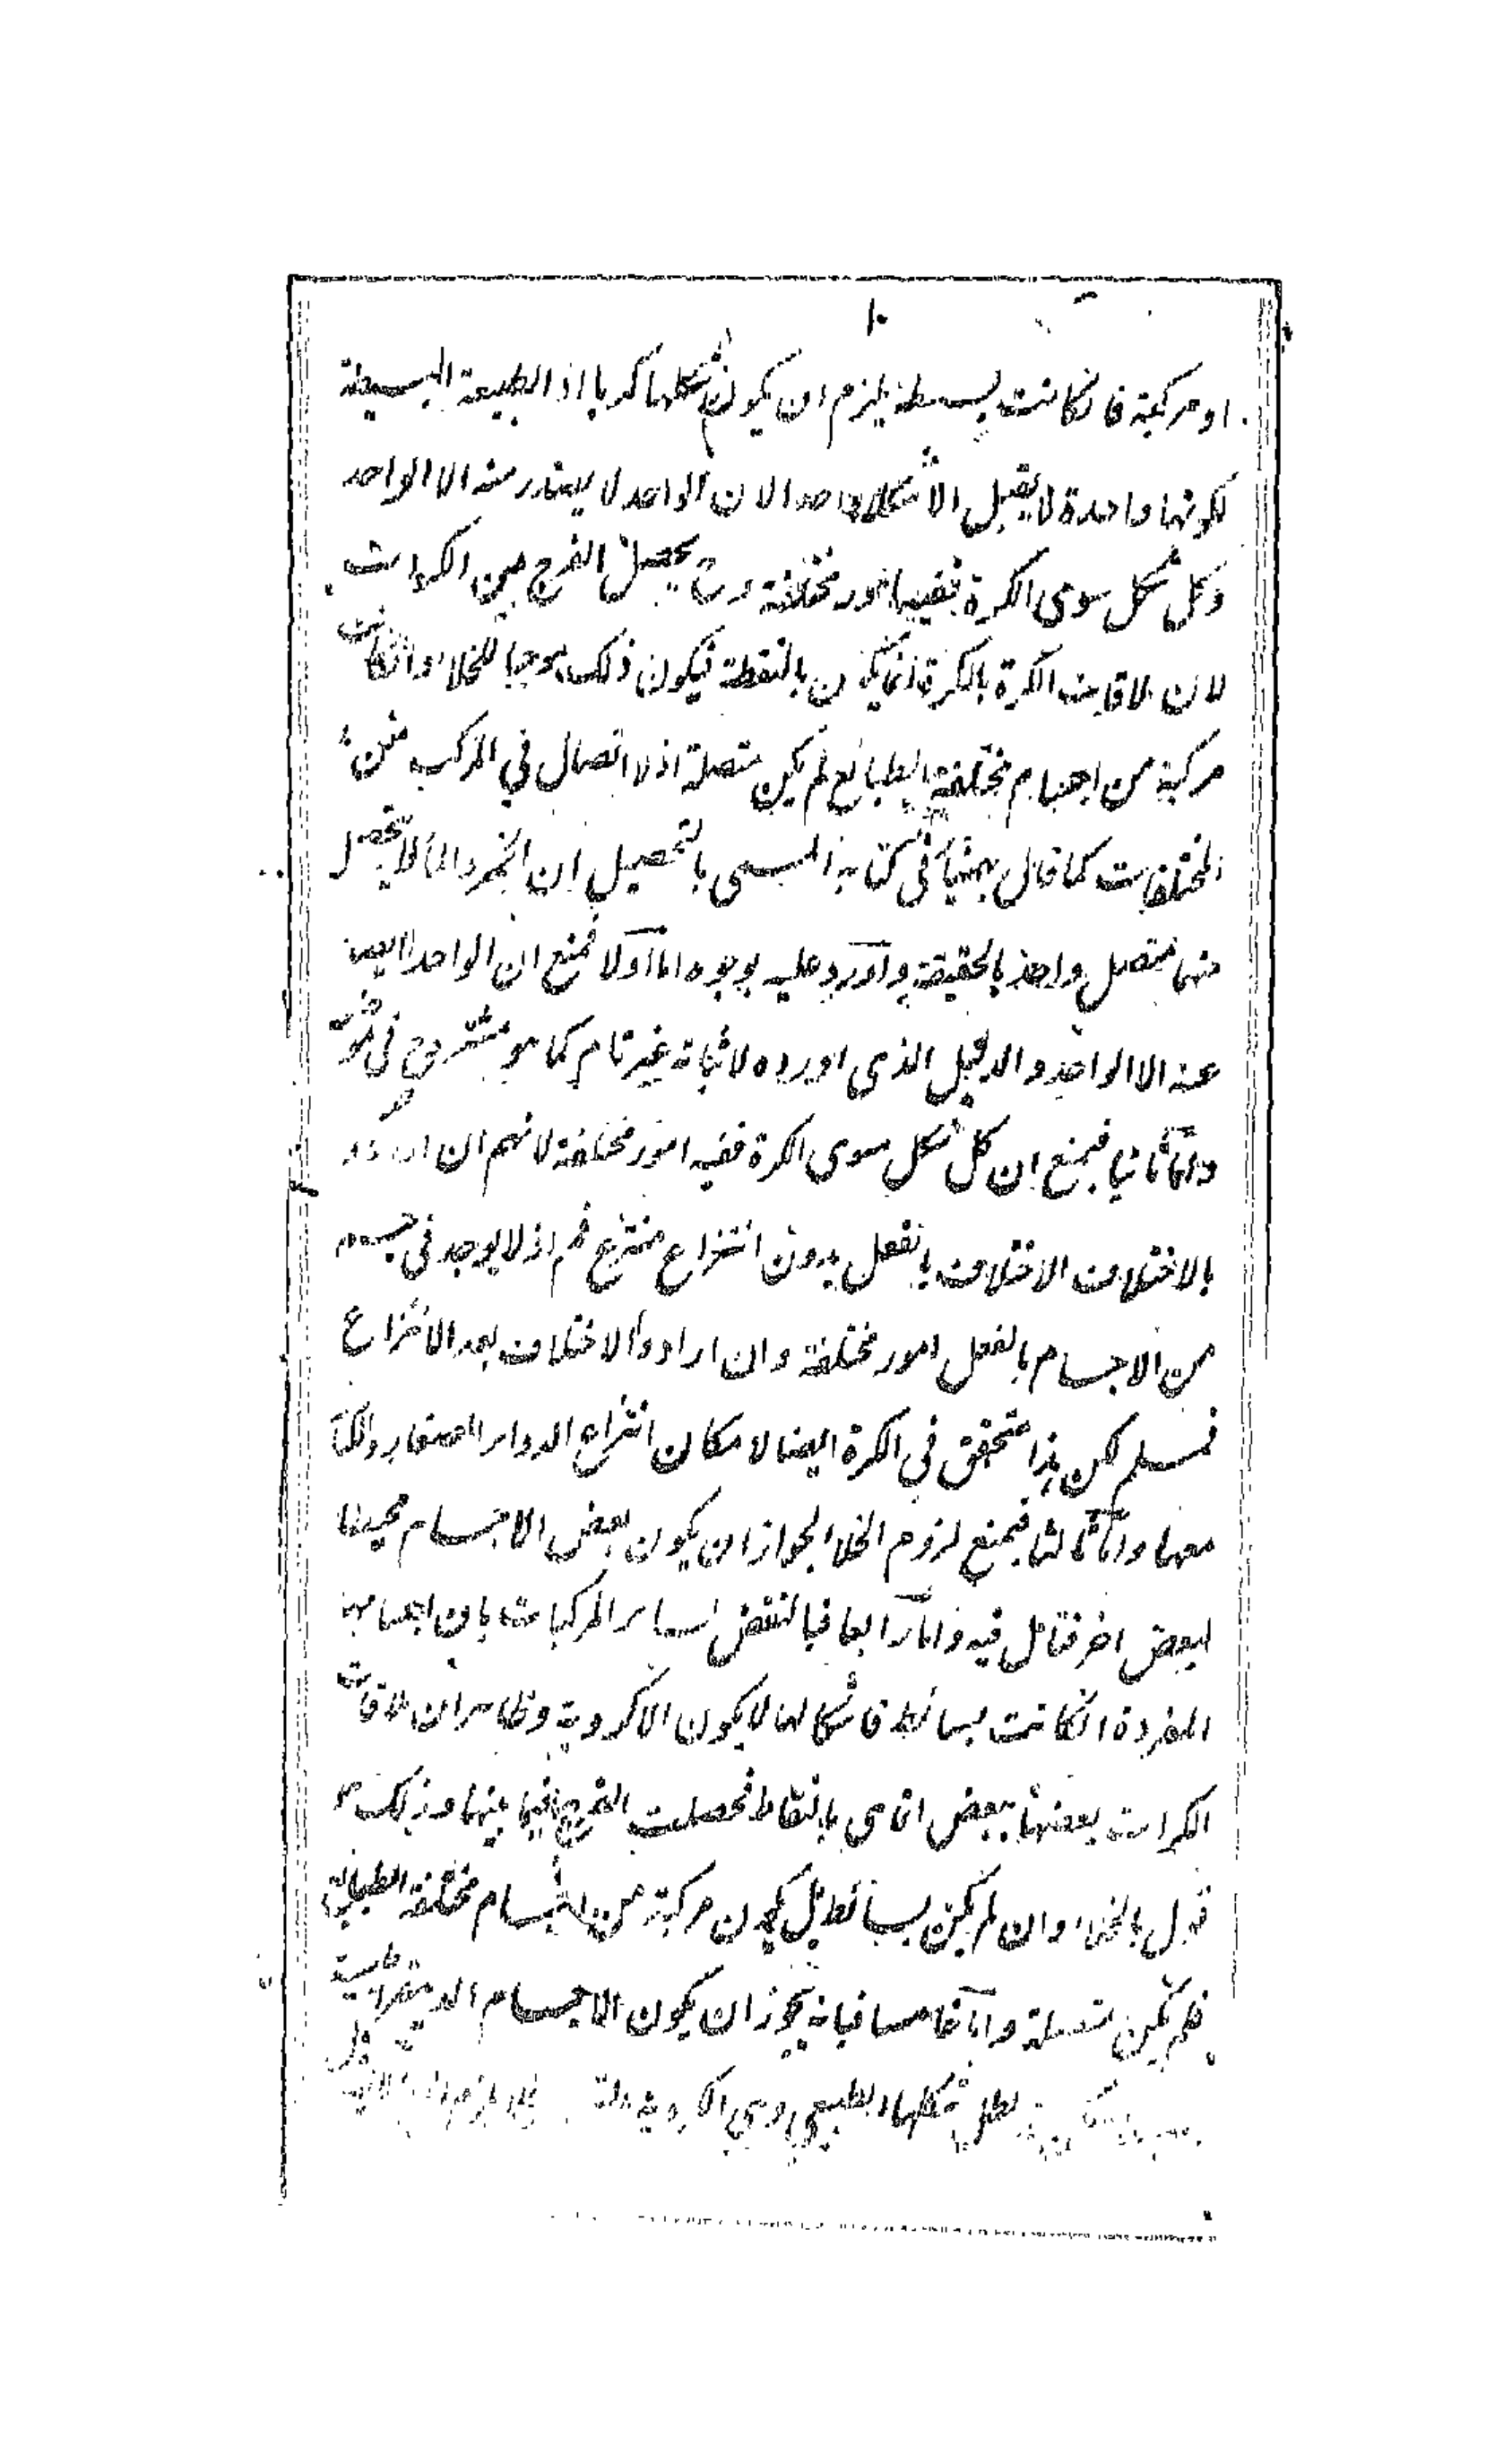 ١٠
او مركبة فانكانت بسيطة يلزم ان يكون شكلها كريا اذ الطبيعة البسيطة
لكونها واحدة لا يقبل الا شكلا واحدا لان الواحد لا يصدر منه الا الواحد
وكل شكل سوى الكرة ففيها امور مختلفة وح يحصل الفرج بين الكرات
لان ملاقات الكرة بالكرة انما يكون بالنقطة فيكون ذلك موجبا للخلاء وانكانت
مركبة من اجسام مختلفة الطبائع لم يكن متصلة اذ لا اتصال في المركب من
المختلفات كما قال بهمنيار في كتابه المسمى بالتحصيل ان الخمر والماء لا يحصل
منهما متصل واحد بالحقيقة واورد عليه بوجوه اما اولا فمنع ان الواحد لا يصدر
عنه الا الواحد والدليل الذي اورده لاثباته غير تام كما هو مشروح في موضعه
واما ثانيا فبمنع ان كل شكل سوى الكرة ففيه امور مختلفة لانهم ان ارادوا
بالاختلاف الاختلاف بالفعل بدون انتزاع منتزع فم اذ لا يوجد في جسم
من الاجسام بالفعل امور مختلفة وان ارادوا الاختلاف بعد الانتزاع
فمسلم لكن هذا متحقق في الكرة ايضا لامكان انتزاع الدوائر الصغار والكبار
معها واما ثالثا فبمنع لزوم الخلاء لجواز ان يكون بعض الاجسام محيطا
لبعض اخر فتامل فيه واما رابعا فبالنقض لسائر المركبات بان اجسامها
المفردة انكانت بسائط فاشكالها لا يكون الا كروية وظاهر ان ملاقات
الكرات بعضها ببعض انما هي بالنقاط فحصلت الفرج فيما بينها وذلك هو
قول بالخلاء وان لم يكن بسائط بل يكون مركبة من اجسام مختلفة الطبائع
فلم يكن متصلة واما خامسا فبانه يجوز ان يكون الاجسام الديمقراطيسية
شكلها الطبيعي وهي الكروية